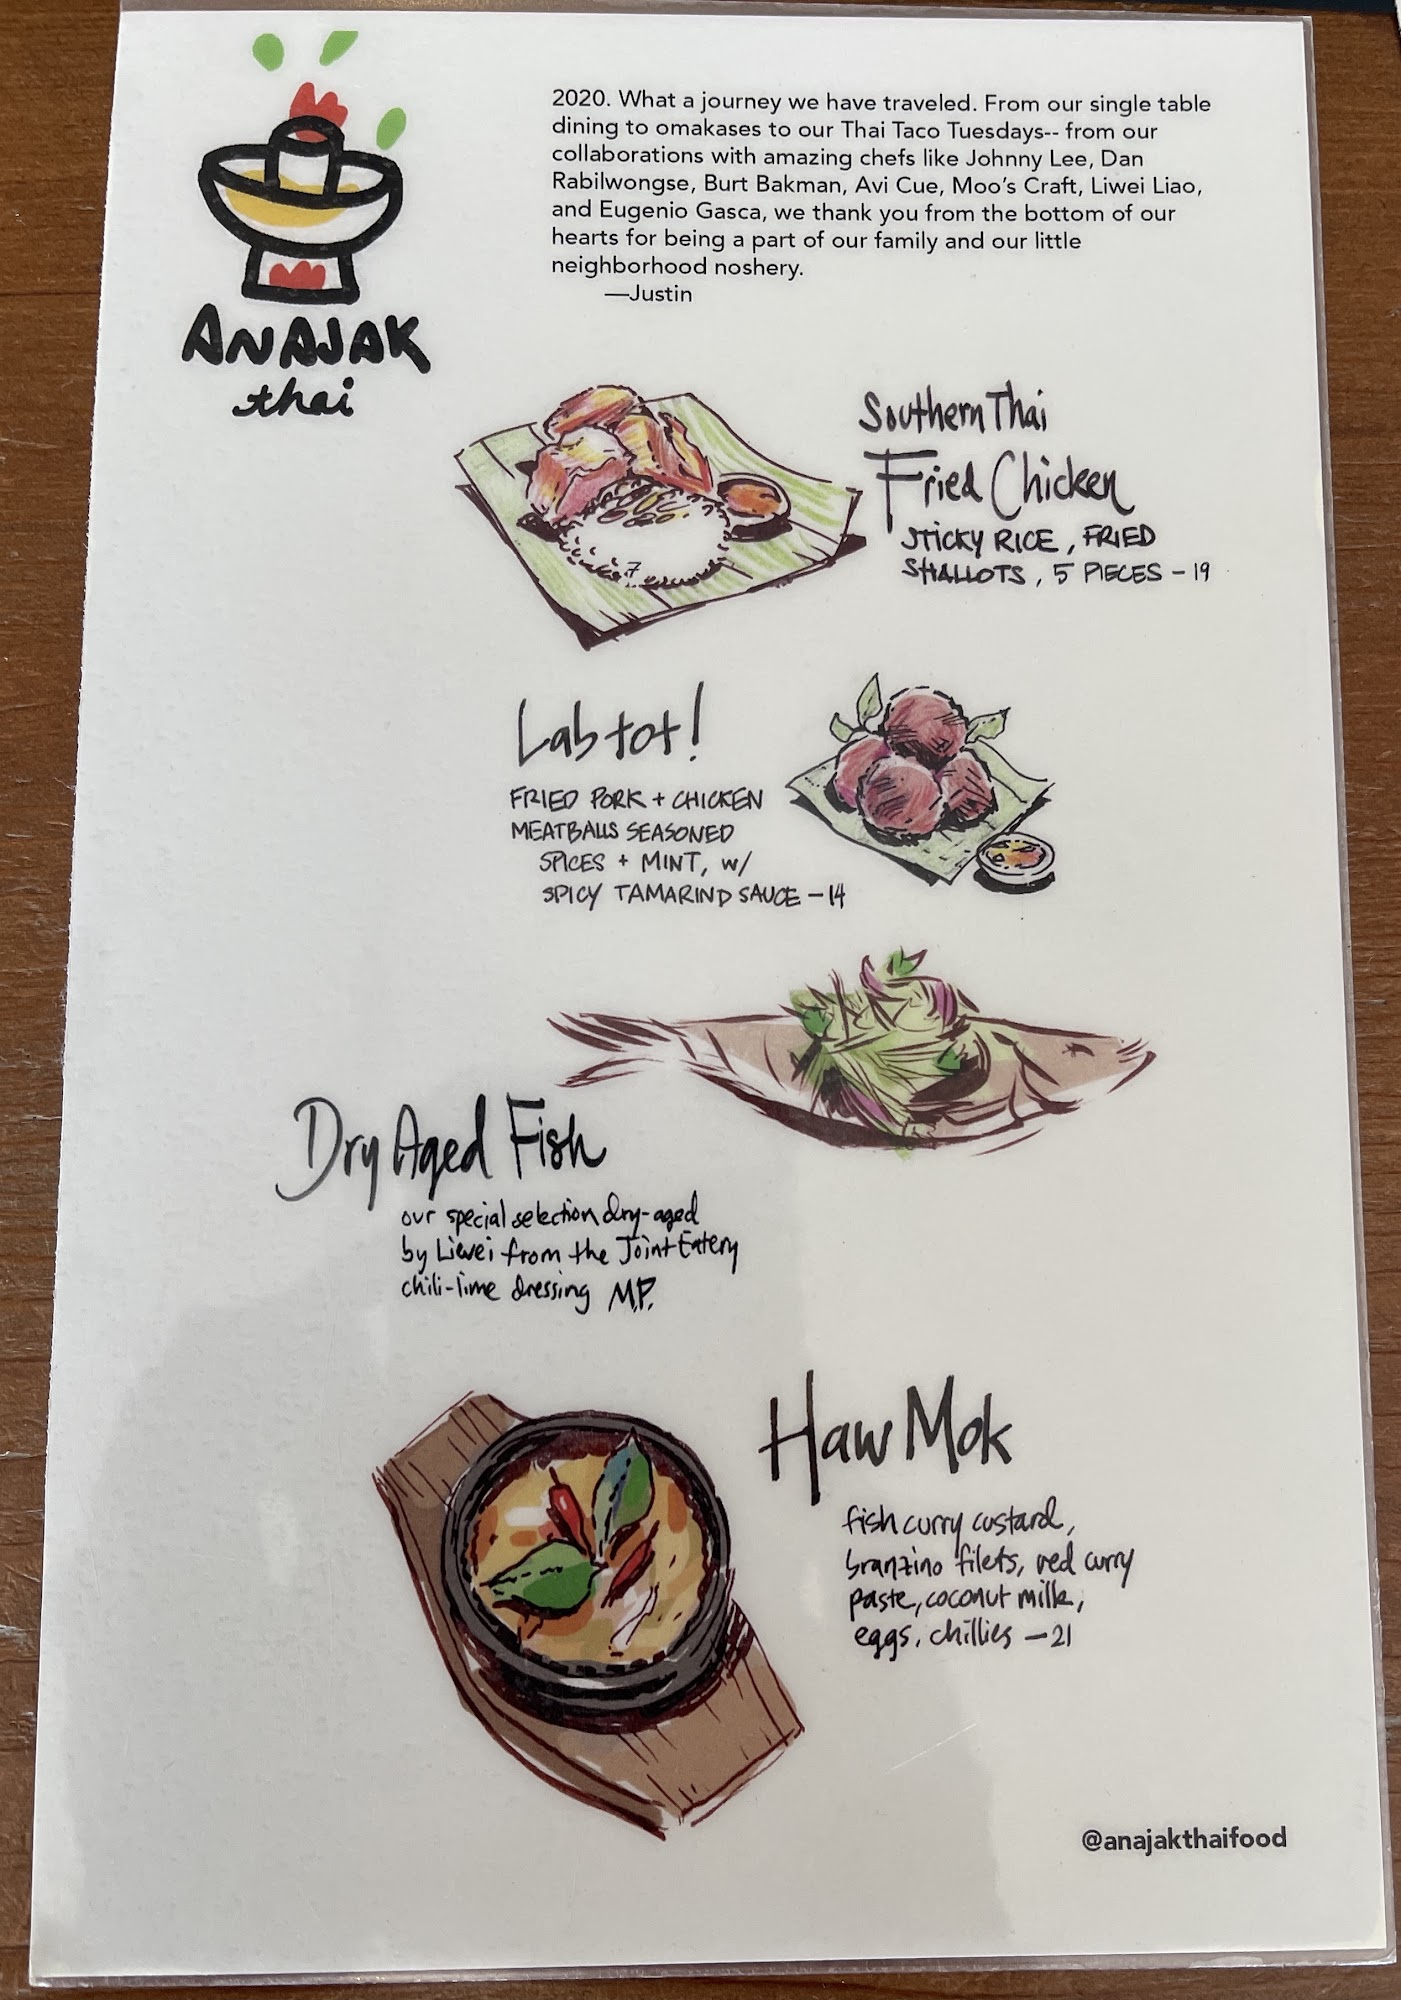 ANAJAK
thai
2020. What a journey we have traveled. From our single table
dining to omakases to our Thai Taco Tuesdays-- from our
collaborations with amazing chefs like Johnny Lee, Dan
Rabilwongse, Burt Bakman, Avi Cue, Moo's Craft, Liwei Liao,
and Eugenio Gasca, we thank you from the bottom of our
hearts for being a part of our family and our little
neighborhood noshery.
—Justin
Southern Thai
Fried Chicken
STICKY RICE, FRIED
SHALLOTS, 5 PIECES - 19
Lab tot!
FRIED PORK + CHICKEN
MEATBALLS SEASONED
SPICES + MINT, W/
SPICY TAMARIND SAUCE - 14
Dry Aged Fish
our special selection dry-aged
by Liwei from the Joint Eatery
chili-lime dressing M.P.
Haw Mok
fish curry custard,
branzino filets, red curry
paste, coconut milk,
eggs, chillies - 21
@anajakthaifood